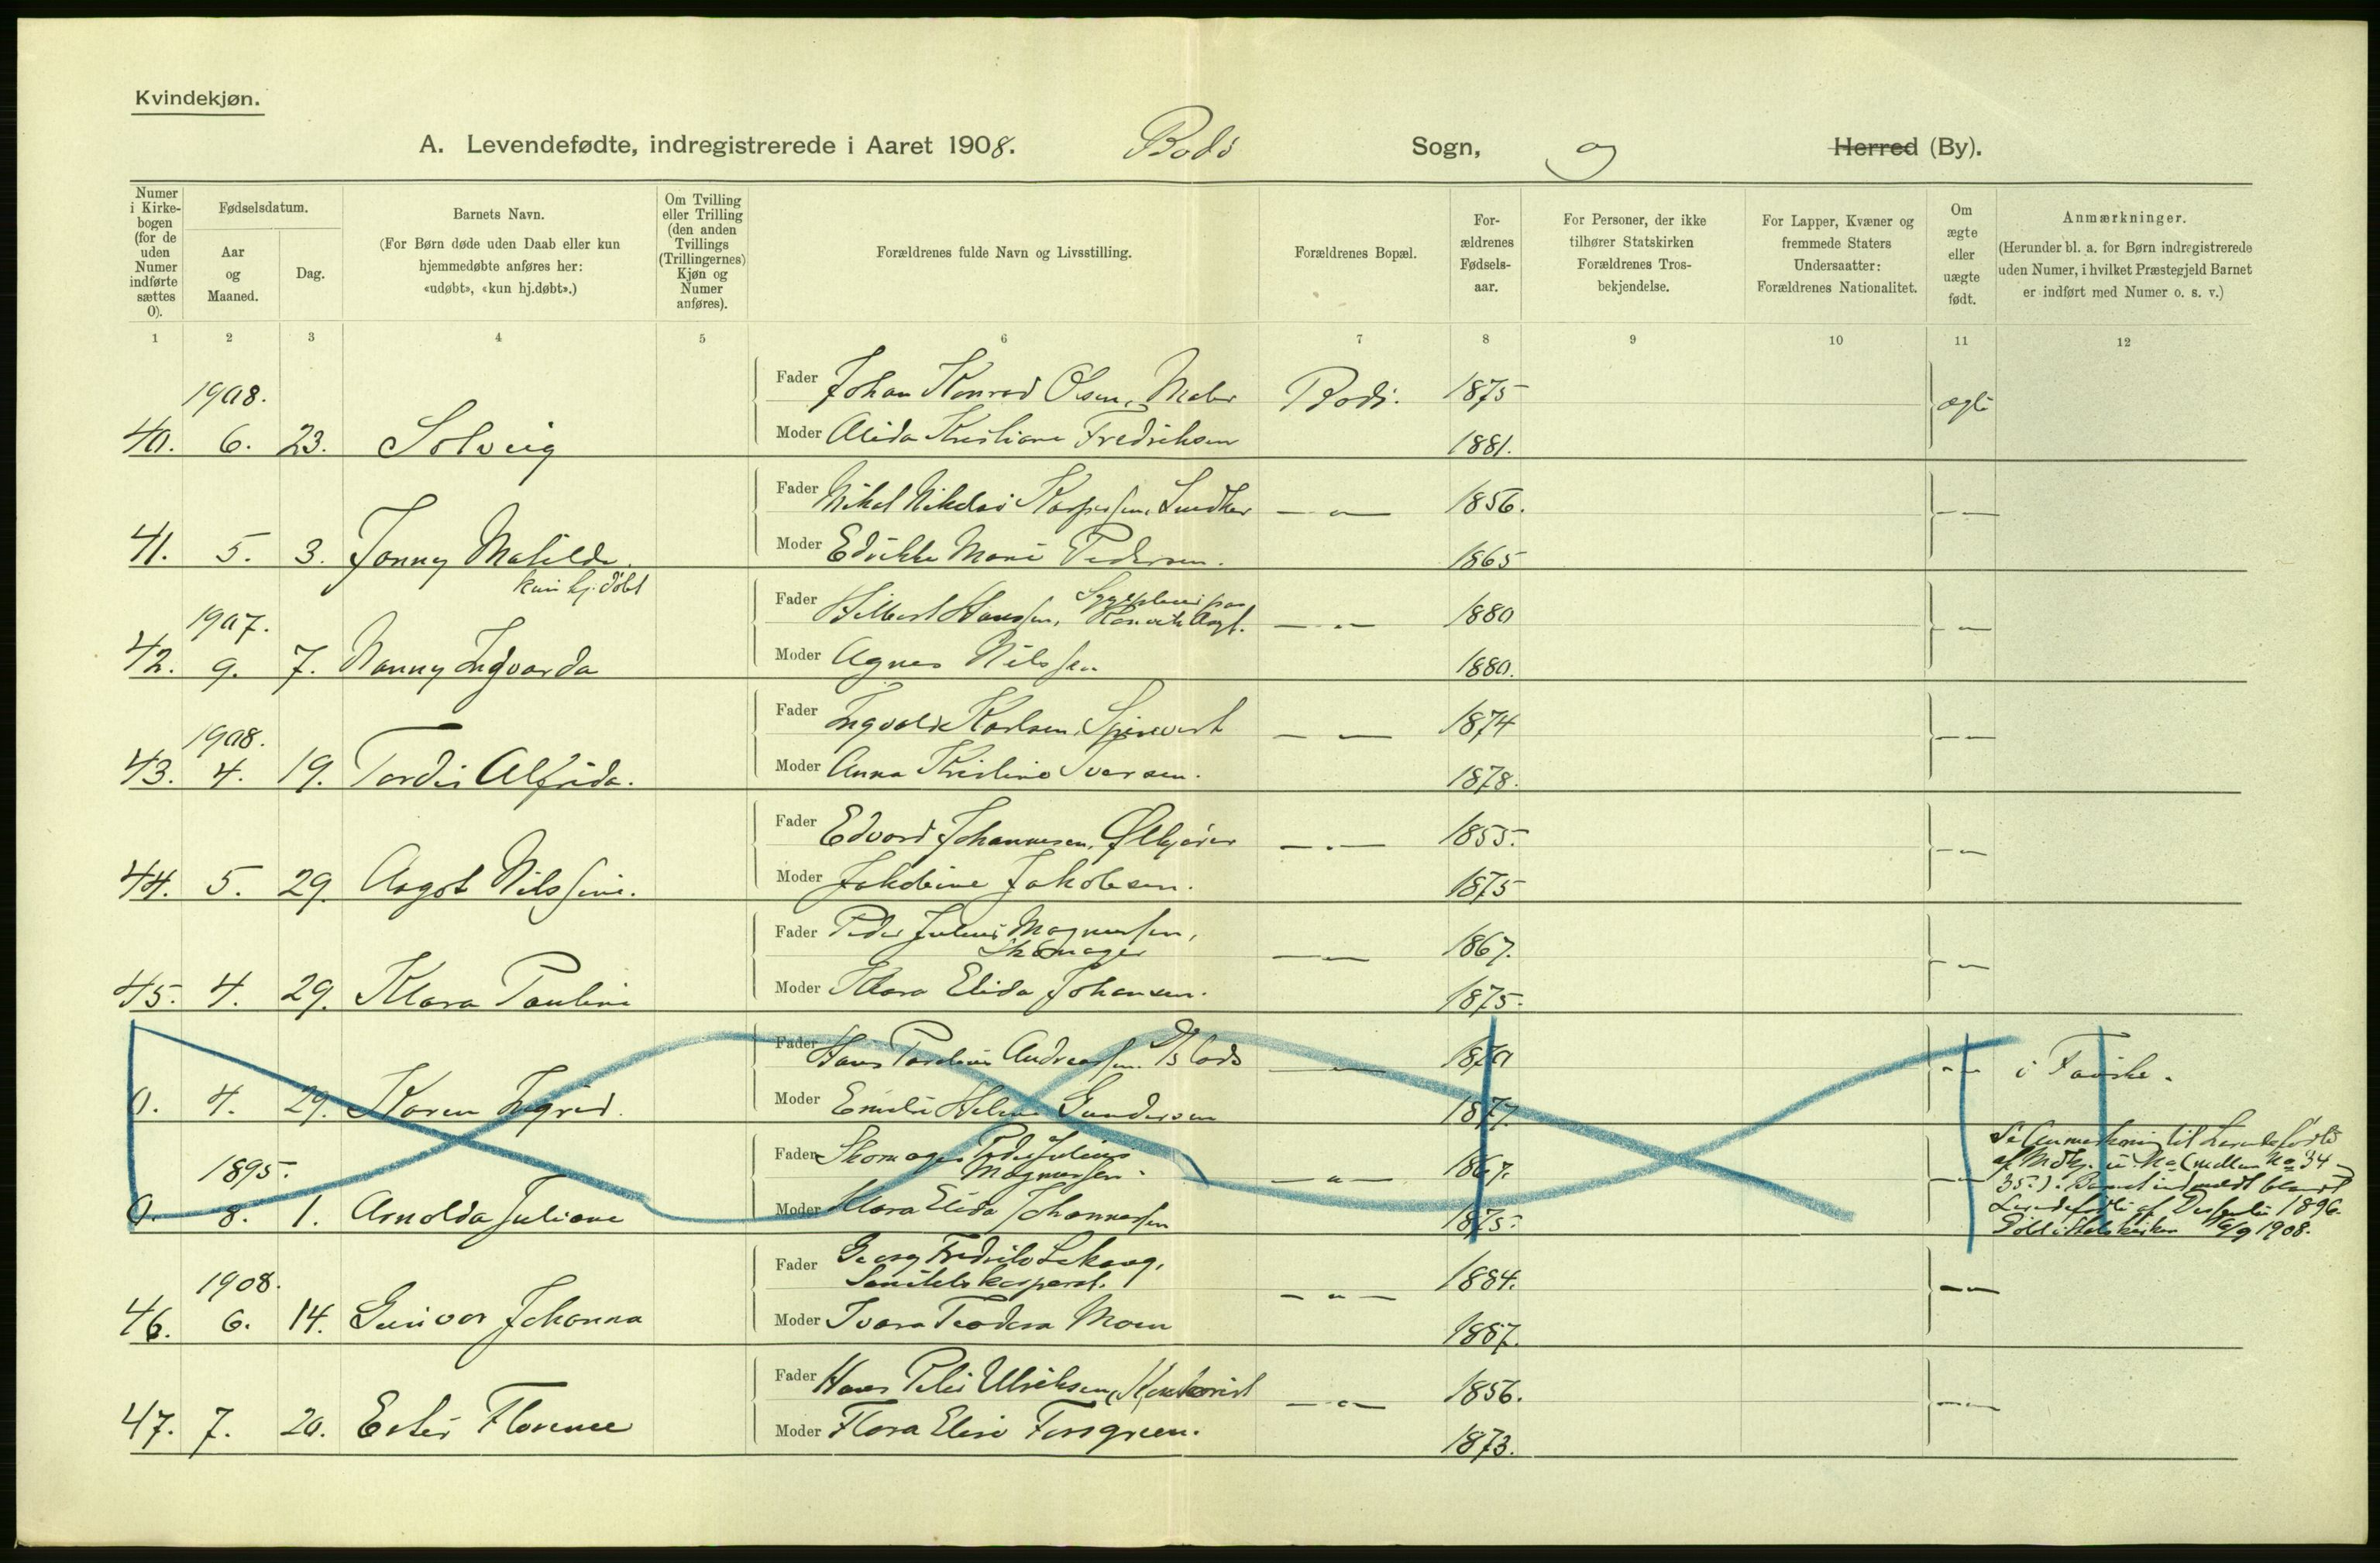 Kvindekjøn.
A. Levendefødte, indregistrerede i Aaret 1908. Bodø Sogn, og Herred (By).
Numer i Kirkebogen (for de uden Numer indførte sættes 0).
Fødselsdatum.
Aar og Maaned.
Dag.
Barnets Navn.
(For Børn døde uden Daab eller kun hjemmedøbte anføres her: «udøbt», «kun hj.døbt».)
Om Tvilling eller Trilling (den anden Tvillings (Trillingernes) Kjøn og Numer anføres).
Forældrenes fulde Navn og Livsstilling.
Forældrenes Bopæl.
For-ældrenes Fødsels-aar.
For Personer, der ikke tilhører Statskirken Forældrenes Tros-bekjendelse.
For Lapper, Kvæner og fremmede Staters Undersaatter: Forældrenes Nationalitet.
Om ægte eller uægte født.
Anmærkninger.
(Herunder bl. a. for Børn indregistrerede uden Numer, i hvilket Præstegjeld Barnet er indført med Numer o. s. v.)
1 2 3 4 5 6 7 8 9 10 11 12
1908.
Fader Johan Konrad Olsen, Maler Bodø. 1875 ægte
40. 6. 23. Solveig
Moder Alida Kristiane Fredriksen 1881.
Fader Mikal Nikolai Kaspersen, Snedker — „ — 1856. — „ —
41. 5. 3. Jonny Matilde.
kun hj. døbt
Moder Edvikke Marie Pedersen. 1865
1907.
Fader Hilbert Hanssen, — „ — 1880 — „ —
42. 9. 7. Nanny Ingvarda
Moder Agnes Nilssen 1880.
1908.
Fader Ingvald Karlsen, — „ — 1874 — „ —
43. 4. 19. Tordis Alfrida.
Moder Anna Kristine Iversen. 1878.
Fader Edvard Johannesen, Ølkjører — „ — 1855. — „ —
44. 5. 29. Aagot Nilssine.
Moder Jakobine Jakobsen. 1875
Fader Peder Julius Magnussen, Skomager — „ — 1867. — „ —
45. 4. 29. Klara Pauline
Moder Klara Elida Johansen. 1875.
Fader Hans Andreassen — „ — 1870 — „ — i Fauske.
0. 4. 29. Karen Ingrid.
Moder Emelie Helene Gundersen 1877.
1895.
Fader Skomager Peder Julius Magnussen. — „ — 1867. — „ —
0. 8. 1. Arnolda Juliane
Moder Klara Elida Johannessen 1875.
Se Anmerkning til Levendefødte
af Mdkj. u. No (mellem No 34 –
35.). Barnet indmeldt blandt
Levendefødte af 1896.
16/9 1908.
1908.
Fader Georg Fredrik — „ — 1884. — „ —
46. 6. 14. Gunvor Johanna
Moder Ivara Teodora Moen 1887.
Fader Hans Peter Ulriksen, Kontorist — „ — 1856. — „ —
47. 7. 20. Ester Florence
Moder Flora Elise Forsgreen. 1873.